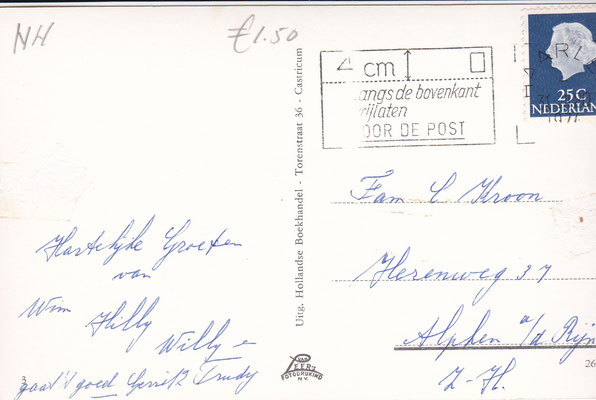 NH
£1.50
4 cm
langs de bovenkant
vrijlaten
VOOR DE POST
25 C
NEDERLAN
1971
Uitg. Hollandse Boekhandel - Torenstraat 36 - Castricum
Fam C Kroon
Herenweg 37
Alphen a/d Rijn
Z-H.
Hartelijke Groeten
van
Wim Hilly
Willy en
gaat't goed Gerrit Trudy
3
VAN LEER'S
FOTODRUKIND
N.V.
26